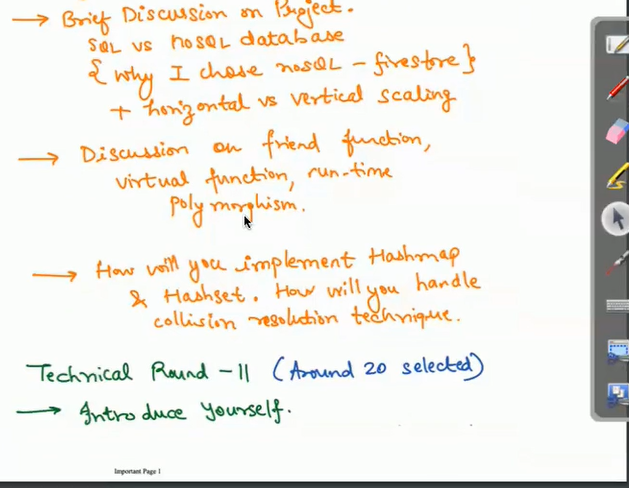 → Brief Discussion on Project.
SQL vs noSQL database
{why I chose noSQL - firestore}
+ horizontal vs vertical scaling
→ Discussion on friend function,
virtual function, run-time
polymorphism.
→ How will you implement Hashmap
& Hashset. How will you handle
collision resolution technique.
Technical Round - II (Around 20 selected)
→ Introduce Yourself.
Important Page 1